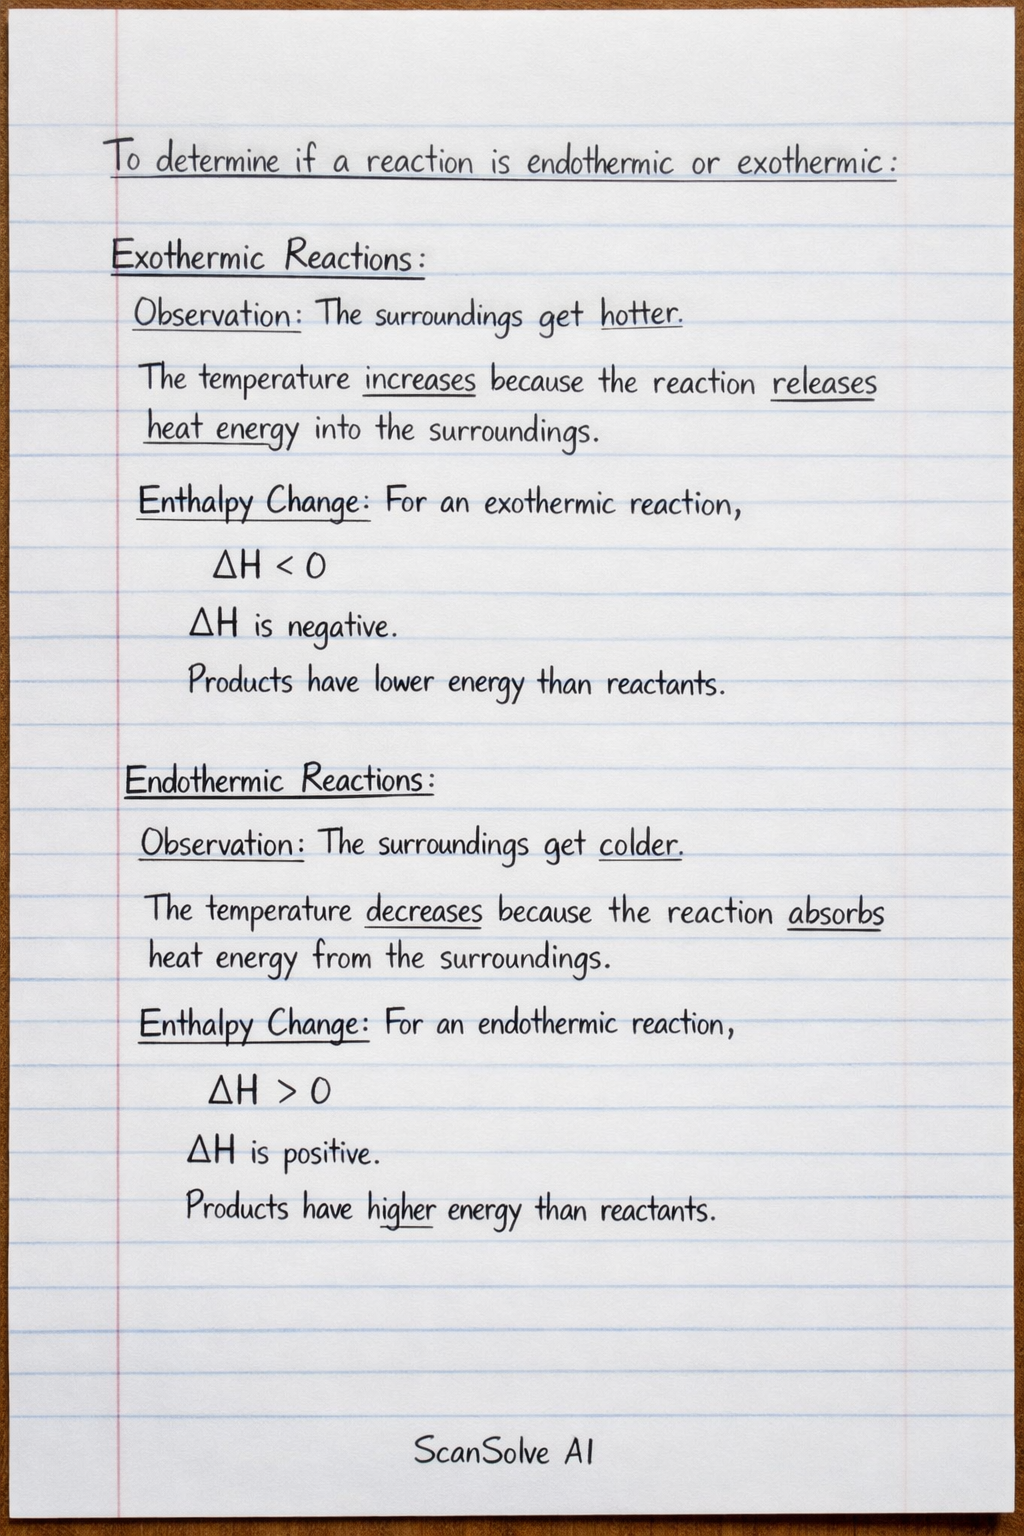 To determine if a reaction is endothermic or exothermic:
Exothermic Reactions:
Observation: The surroundings get hotter.
The temperature increases because the reaction releases
heat energy into the surroundings.
Enthalpy Change: For an exothermic reaction,
ΔH < 0
ΔH is negative.
Products have lower energy than reactants.
Endothermic Reactions:
Observation: The surroundings get colder.
The temperature decreases because the reaction absorbs
heat energy from the surroundings.
Enthalpy Change: For an endothermic reaction,
ΔH > 0
ΔH is positive.
Products have higher energy than reactants.
ScanSolve AI